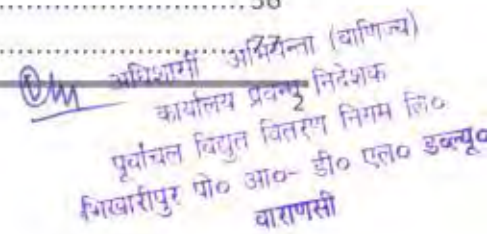 .................... 36
....................
अधिशासी अभियन्ता (वाणिज्य)
कार्यालय प्रबन्ध निदेशक
2
पूर्वांचल विद्युत वितरण निगम लि०
भिखारीपुर पो० आ०- डी० एल० डब्ल्यू०
वाराणसी